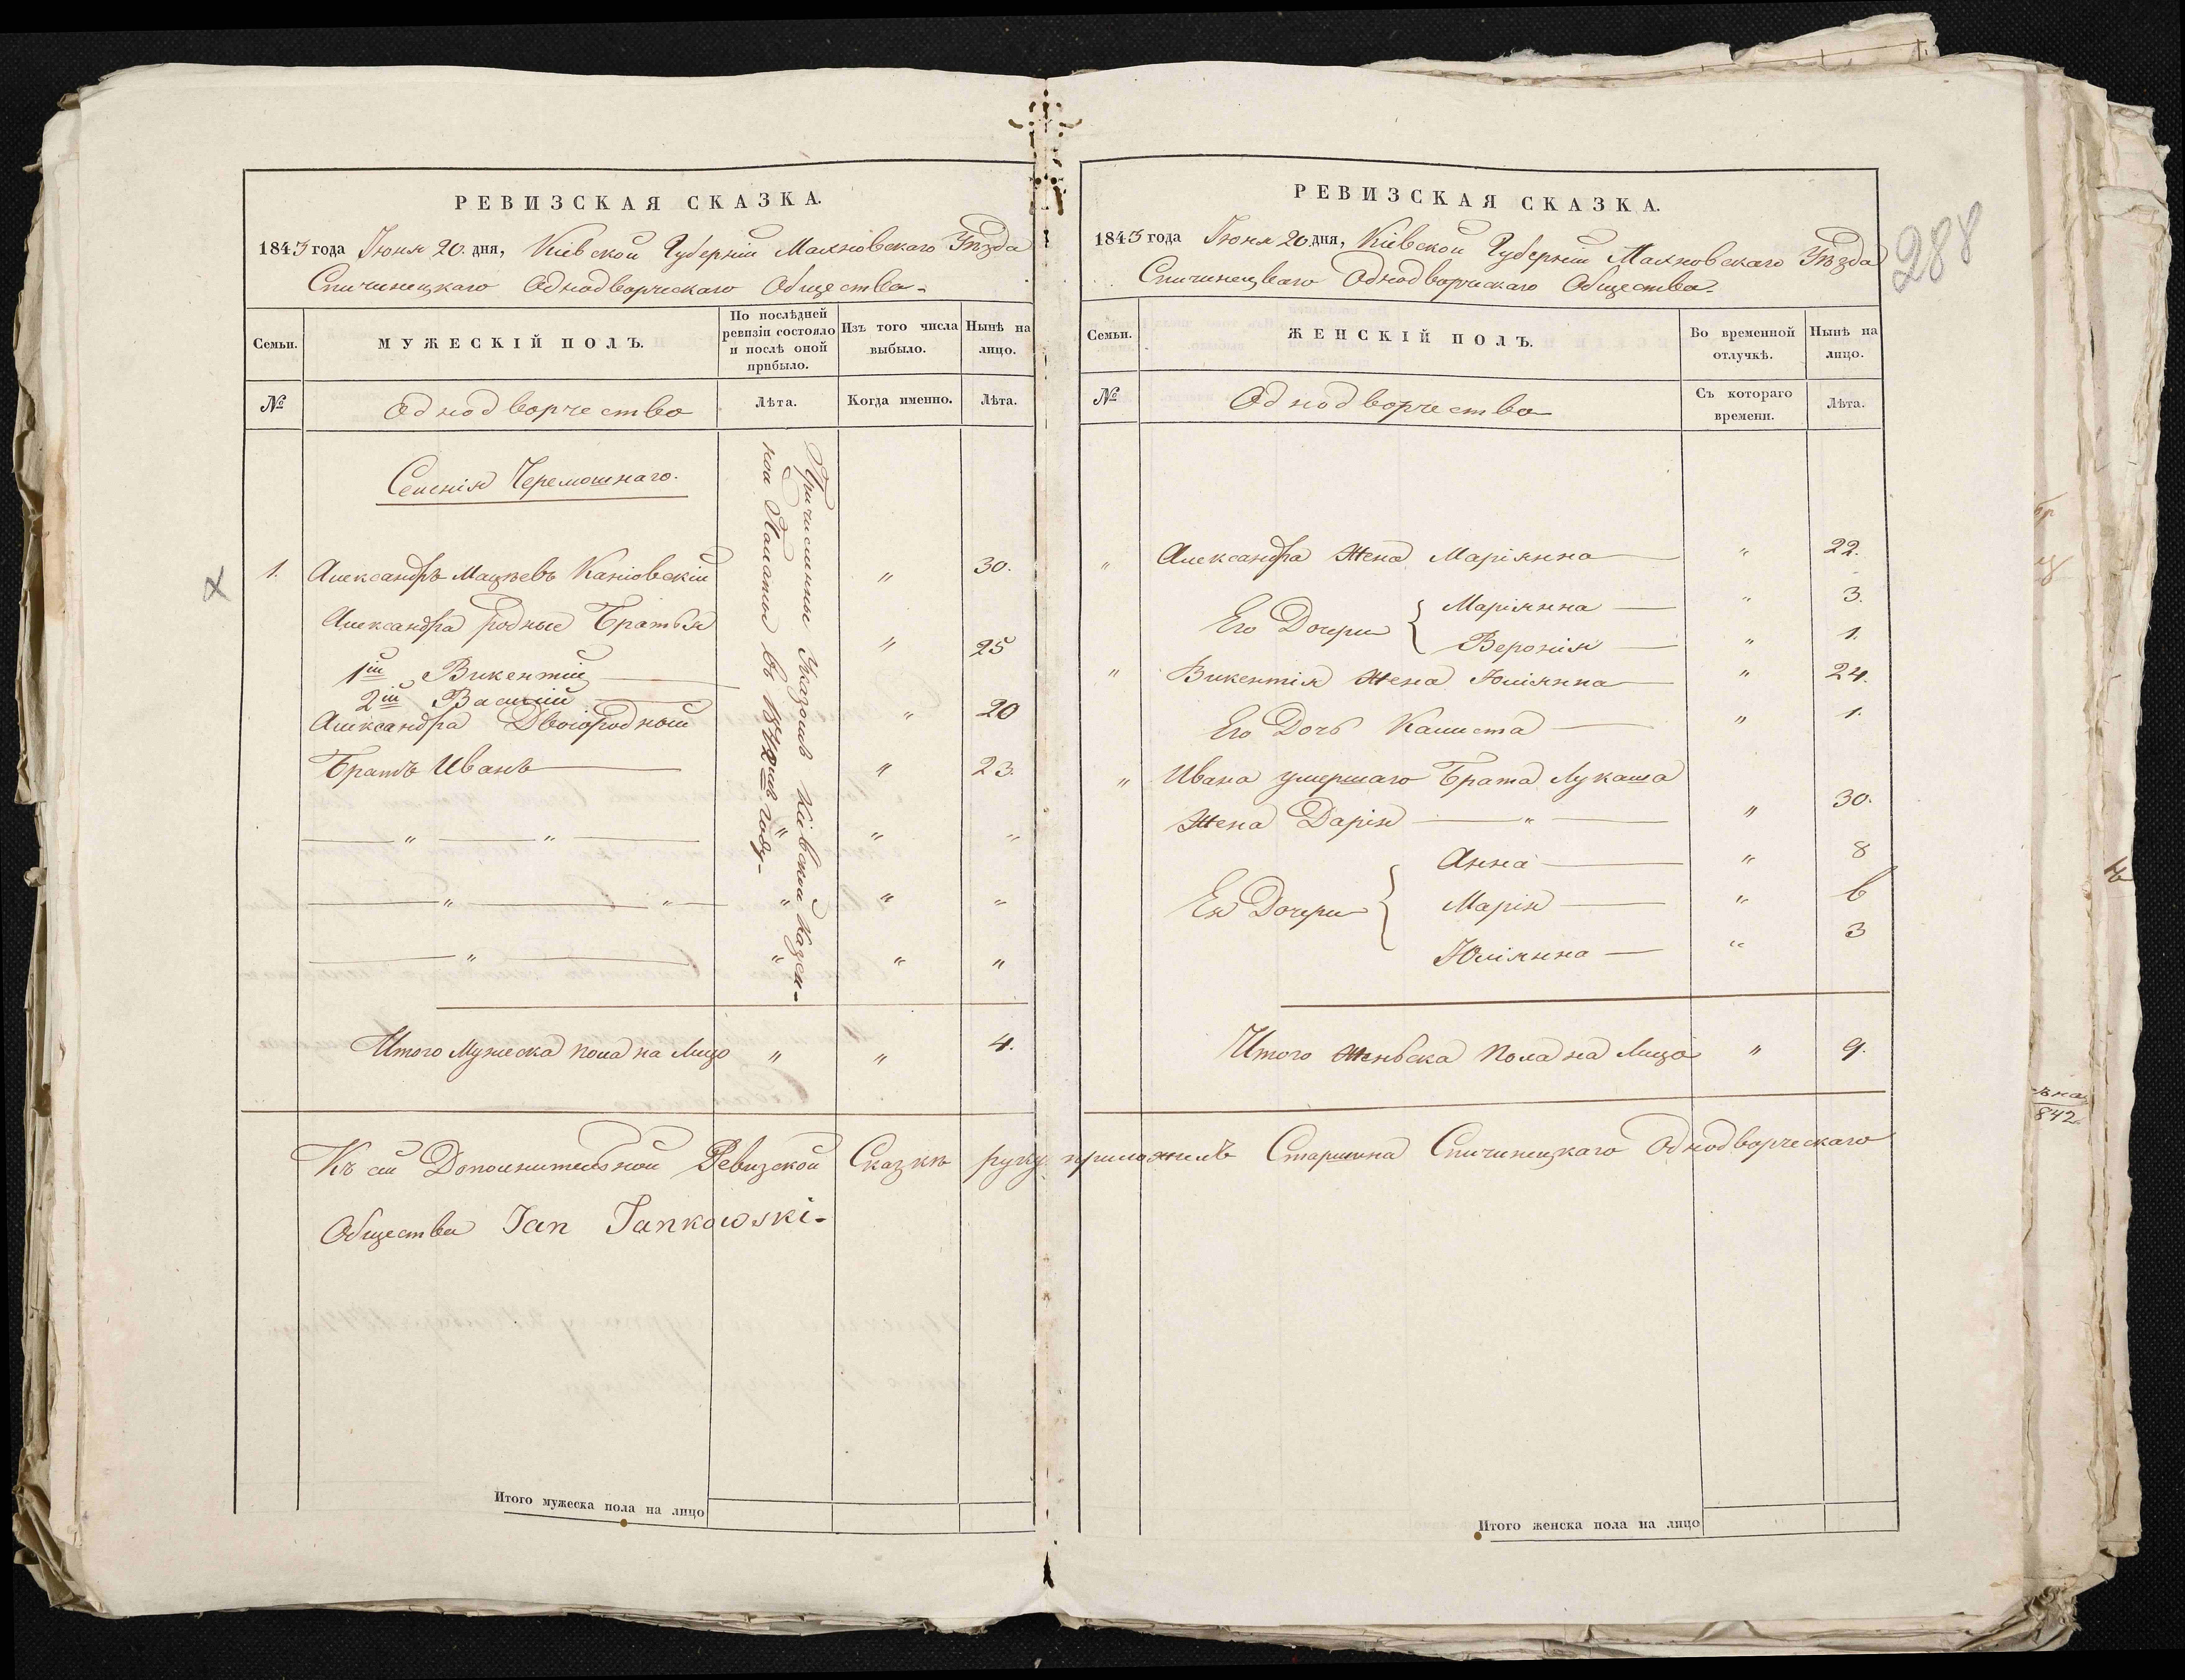 РЕВИЗСКАЯ СКАЗКА.
1843 года Іюня 20. дня, Кіевской Губерніи Махновскаго Уѣзда
Спичинецкаго Однодворческаго Общества.
Семьи.
МУЖЕСКІЙ ПОЛЪ.
По послѣдней ревизіи состояло и послѣ оной прибыло.
Изъ того числа выбыло.
Нынѣ на лицо.
№
Однодворчество
Лѣта.
Когда именно.
Лѣта.
Селенія Черемошнаго.
Причисленные Указомъ Кіевской Казен-
ной Палаты въ 1842мъ году
1. Александръ Мацѣевъ Каніовскій " 30.
Александра родные Братья
1й Викентій " 25
2й Василій " 20
Александра Двоюродный
Братъ Иванъ " 23.
" " " " "
" " " " "
" " " "
Итого Мужеска пола на Лицо " " 4.
Къ сей Дополнительной Ревизской Сказкѣ руку приложилъ Старшина Спичинецкаго Однодворческаго
Общества Jan Jankowski
Итого мужеска пола на лицо
РЕВИЗСКАЯ СКАЗКА.
1843 года Іюня 20. дня, Кіевской Губерніи Махновскаго Уѣзда
Спичинецкаго Однодворческаго Общества.
288
Семьи.
ЖЕНСКІЙ ПОЛЪ.
Во временной отлучкѣ.
Нынѣ на лицо.
№
Однодворчество
Съ котораго времени.
Лѣта.
" Александра Жена Маріянна " 22.
Его Дочери { Маріянна " 3.
Веронія " 1.
" Викентія Жена Юліянна " 24.
Его Дочь Калиста " 1.
" Ивана умершаго Брата Лукаша
Жена Дарія " " 30.
Анна " 8
Ея Дочери { Марія " 6
Юліянна " 3
Итого Женьска Пола на Лицо " 9.
Итого женска пола на лицо
842